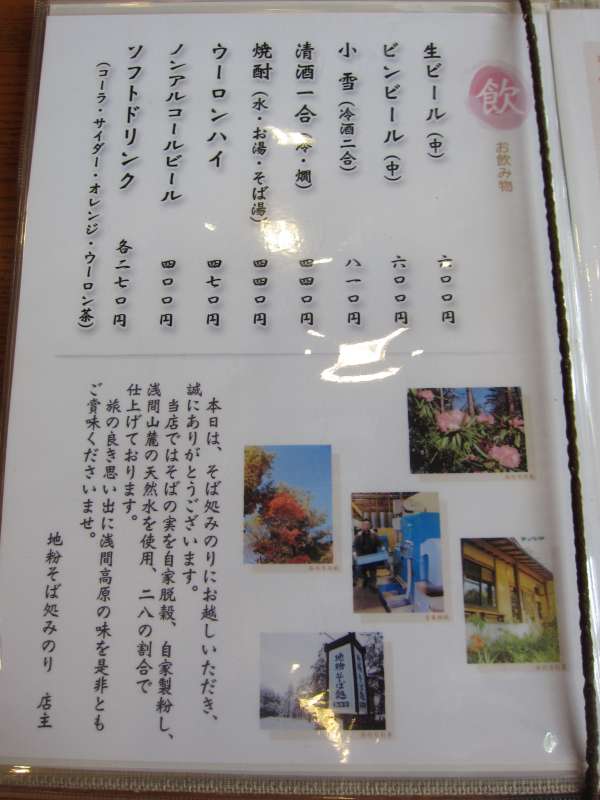 飲
お飲み物
生ビール（中） 六〇〇円
ビンビール（中） 六〇〇円
小雪（冷酒二合） 八一〇円
清酒一合（冷・燗） 四四〇円
焼酎（水・お湯・そば湯） 四四〇円
ウーロンハイ 四七〇円
ノンアルコールビール 四〇〇円
ソフトドリンク 各二七〇円
（コーラ・サイダー・オレンジ・ウーロン茶）
本日は、そば処みのりにお越しいただき、
誠にありがとうございます。
当店ではそばの実を自家脱穀、自家製粉し、
浅間山麓の天然水を使用、二八の割合で
仕上げております。
旅の良き思い出に浅間高原の味を是非とも
ご賞味くださいませ。
地粉そば処みのり 店主
地粉そば処